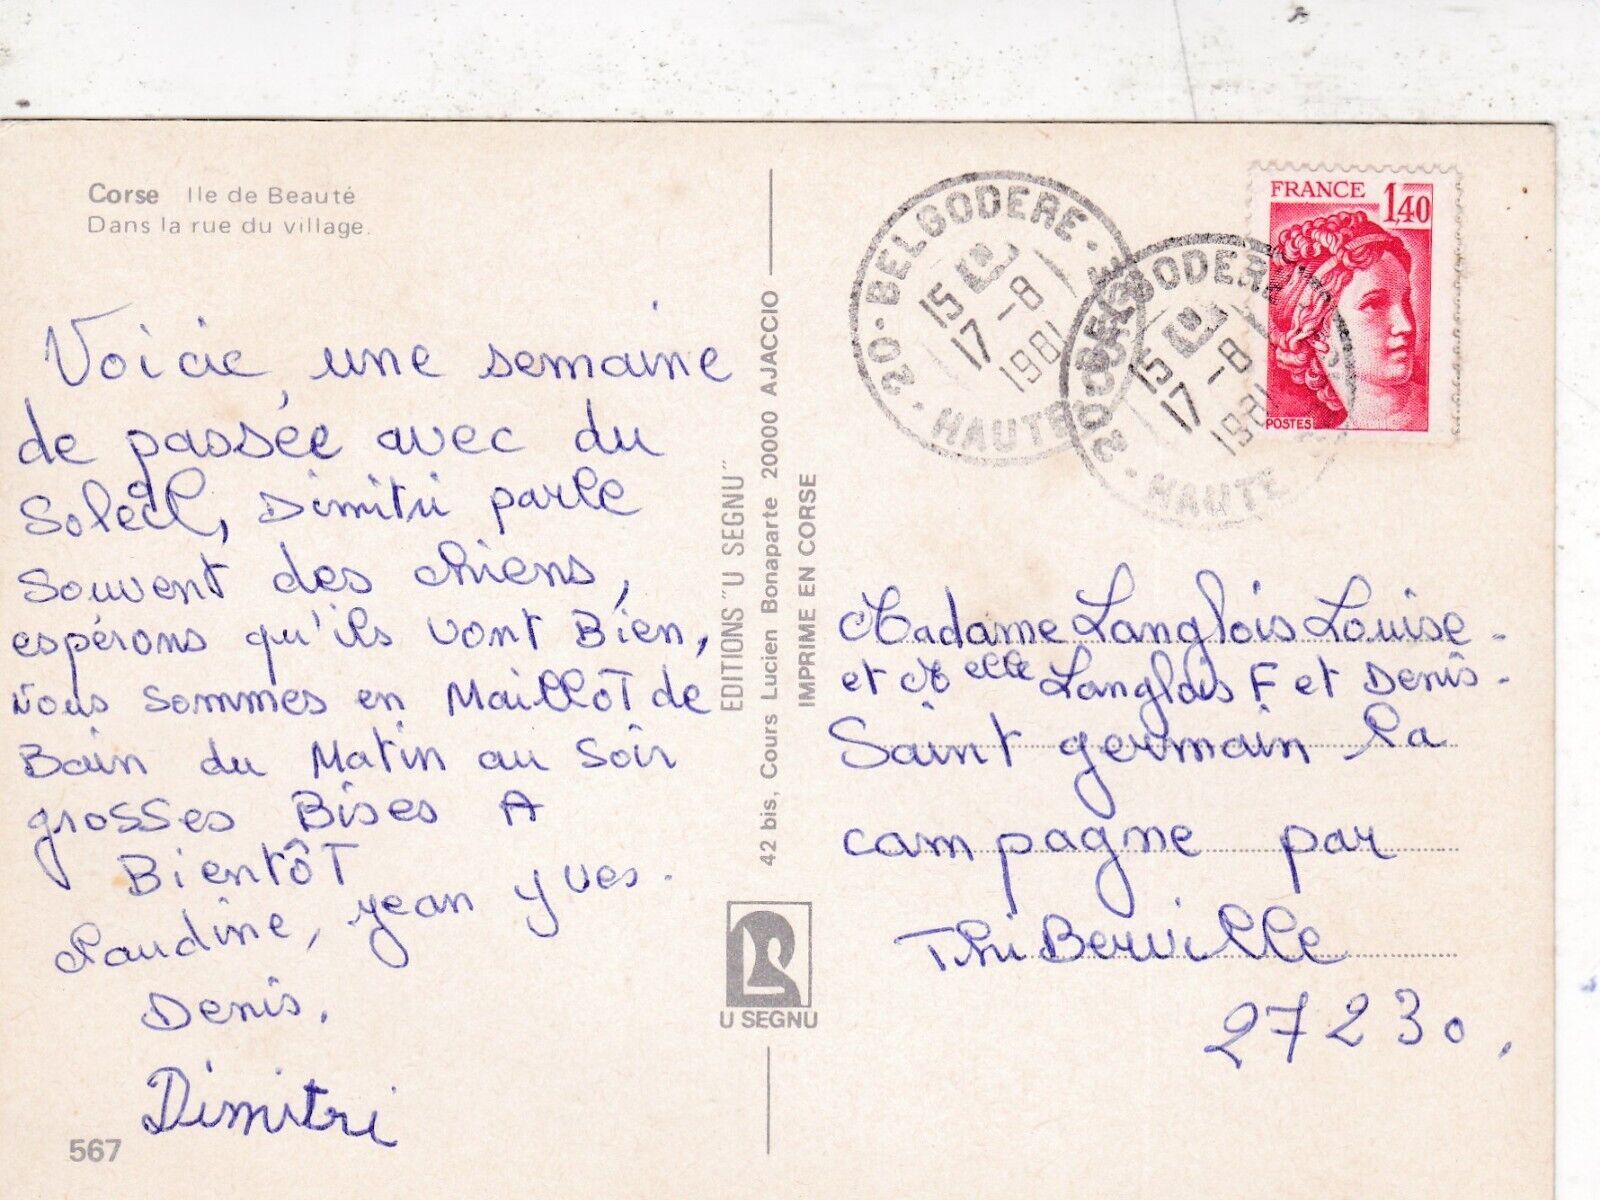 Corse Ile de Beauté
Dans la rue du village.
Voicie une semaine
de passée avec du
Soleil, Dimitri parle
souvent des chiens,
espérons qu'ils vont Bien,
Nous sommes en MailloT de
Bain du Matin au Soir
grosses Bises A
BientôT
Claudine, jean yves.
Denis.
Dimitri
567
EDITIONS "U SEGNU"
42 bis, Cours Lucien Bonaparte 20000 AJACCIO
IMPRIME EN CORSE
U SEGNU
20 - BELGODERE - HAUTE
15
17 -8
1981
20 - BELGODERE HAUTE
15
17 -8
1981
FRANCE 1,40
POSTES
Madame Langlois Louise.
et Melle Langlois F et Denis.
Saint germain la
campagne par
ThiBerville
27230.